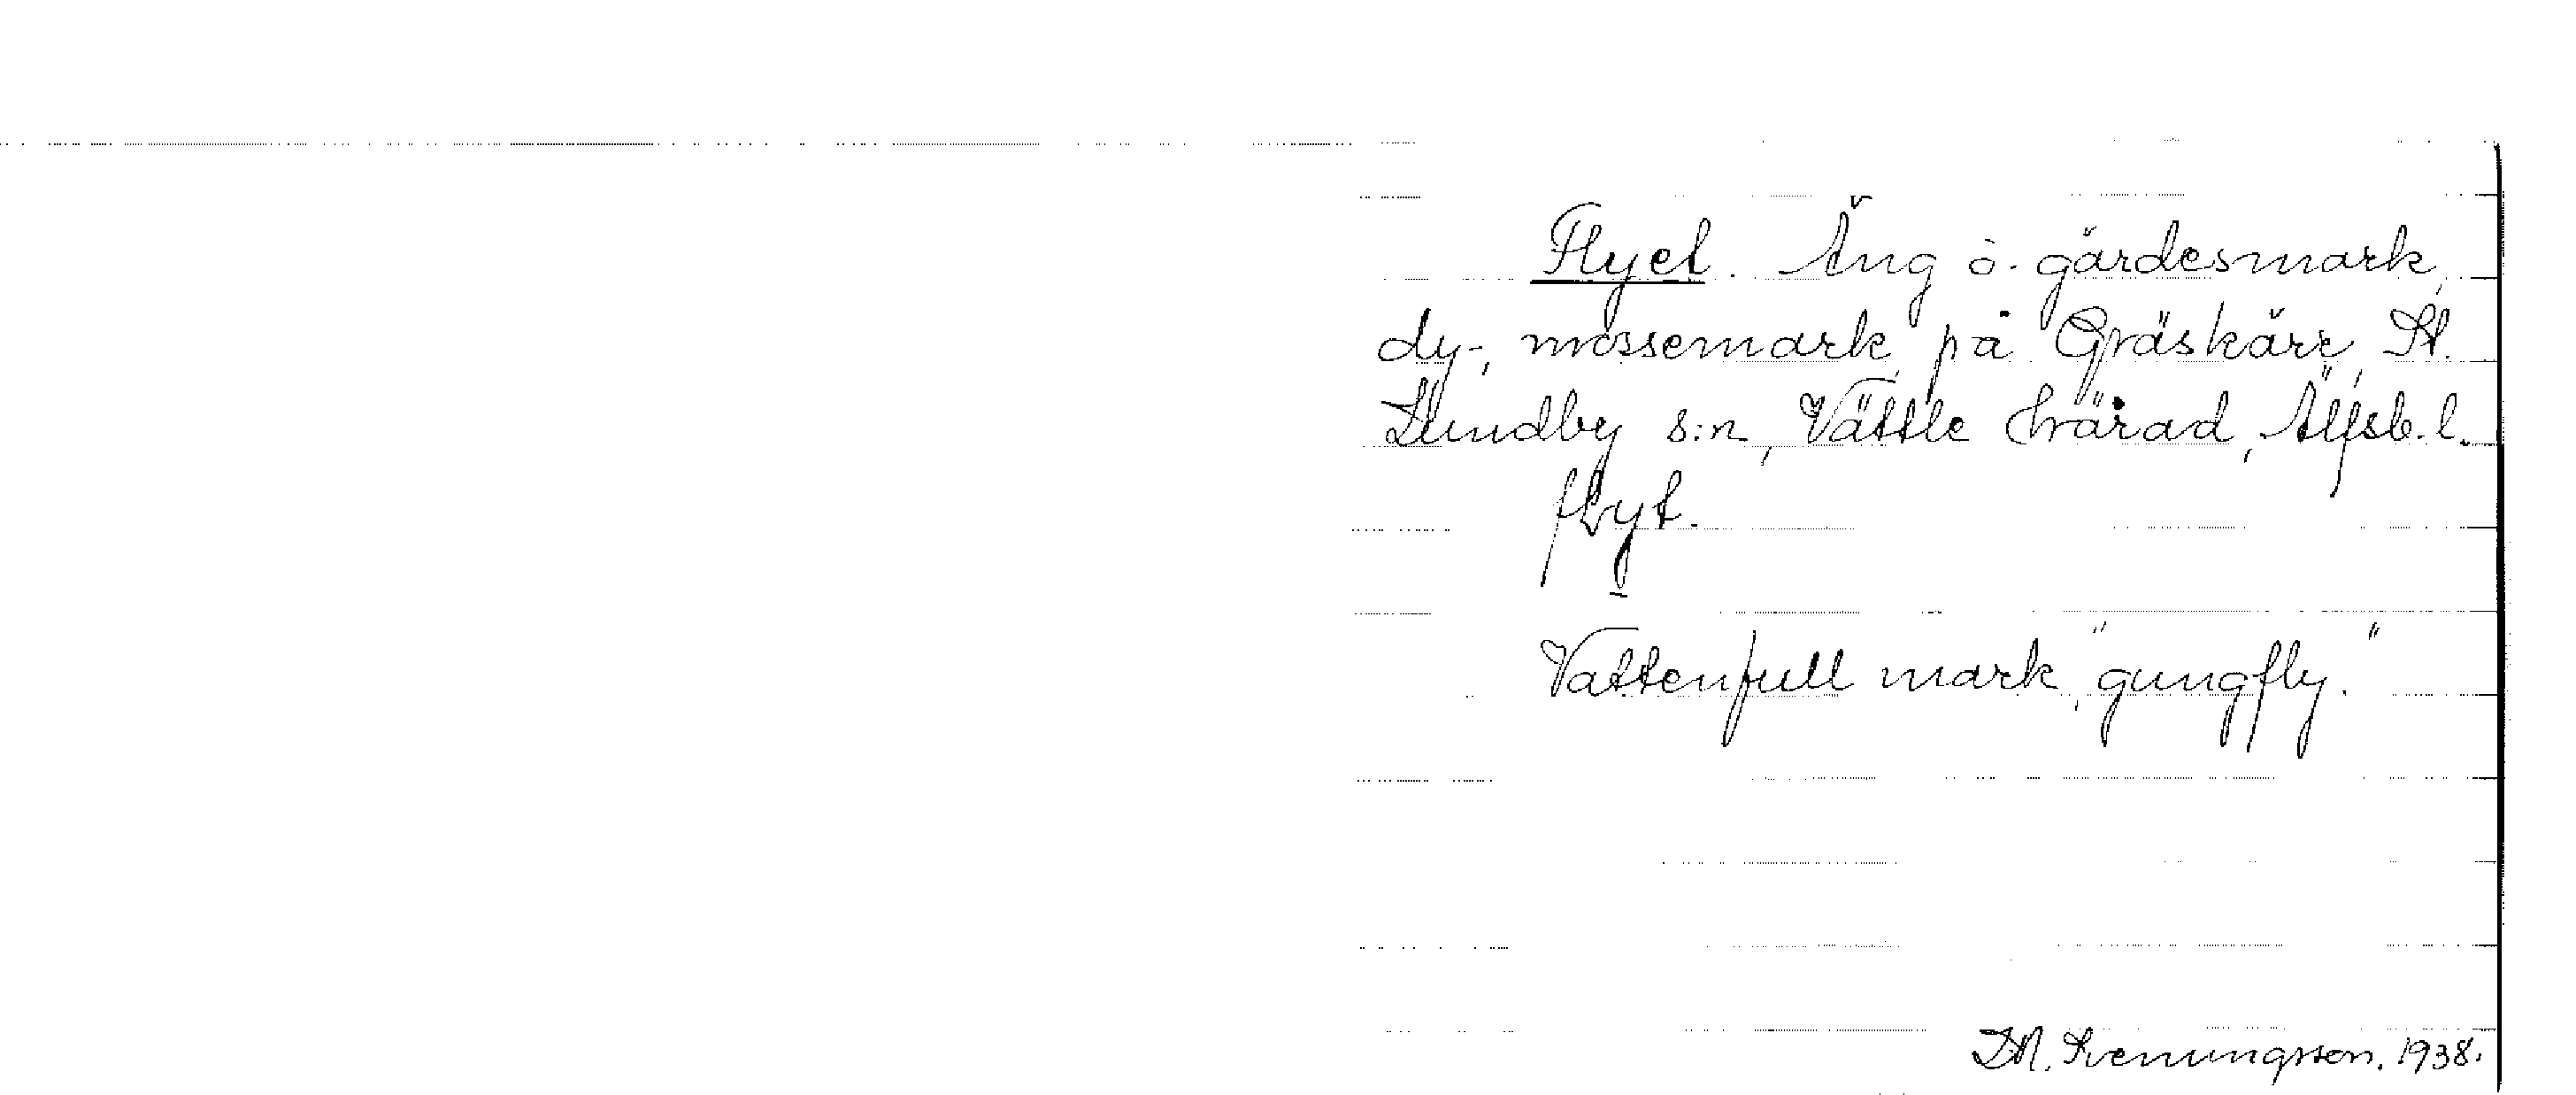 Flyet. Äng o. gärdesmark,
dy-, mossemark, på Gräskärr, St.
Lundby s:n, Vättle härad, Älfsb. l.
flyt.
Vattenfull mark, "gungfly."
Svenungsson. 1938.